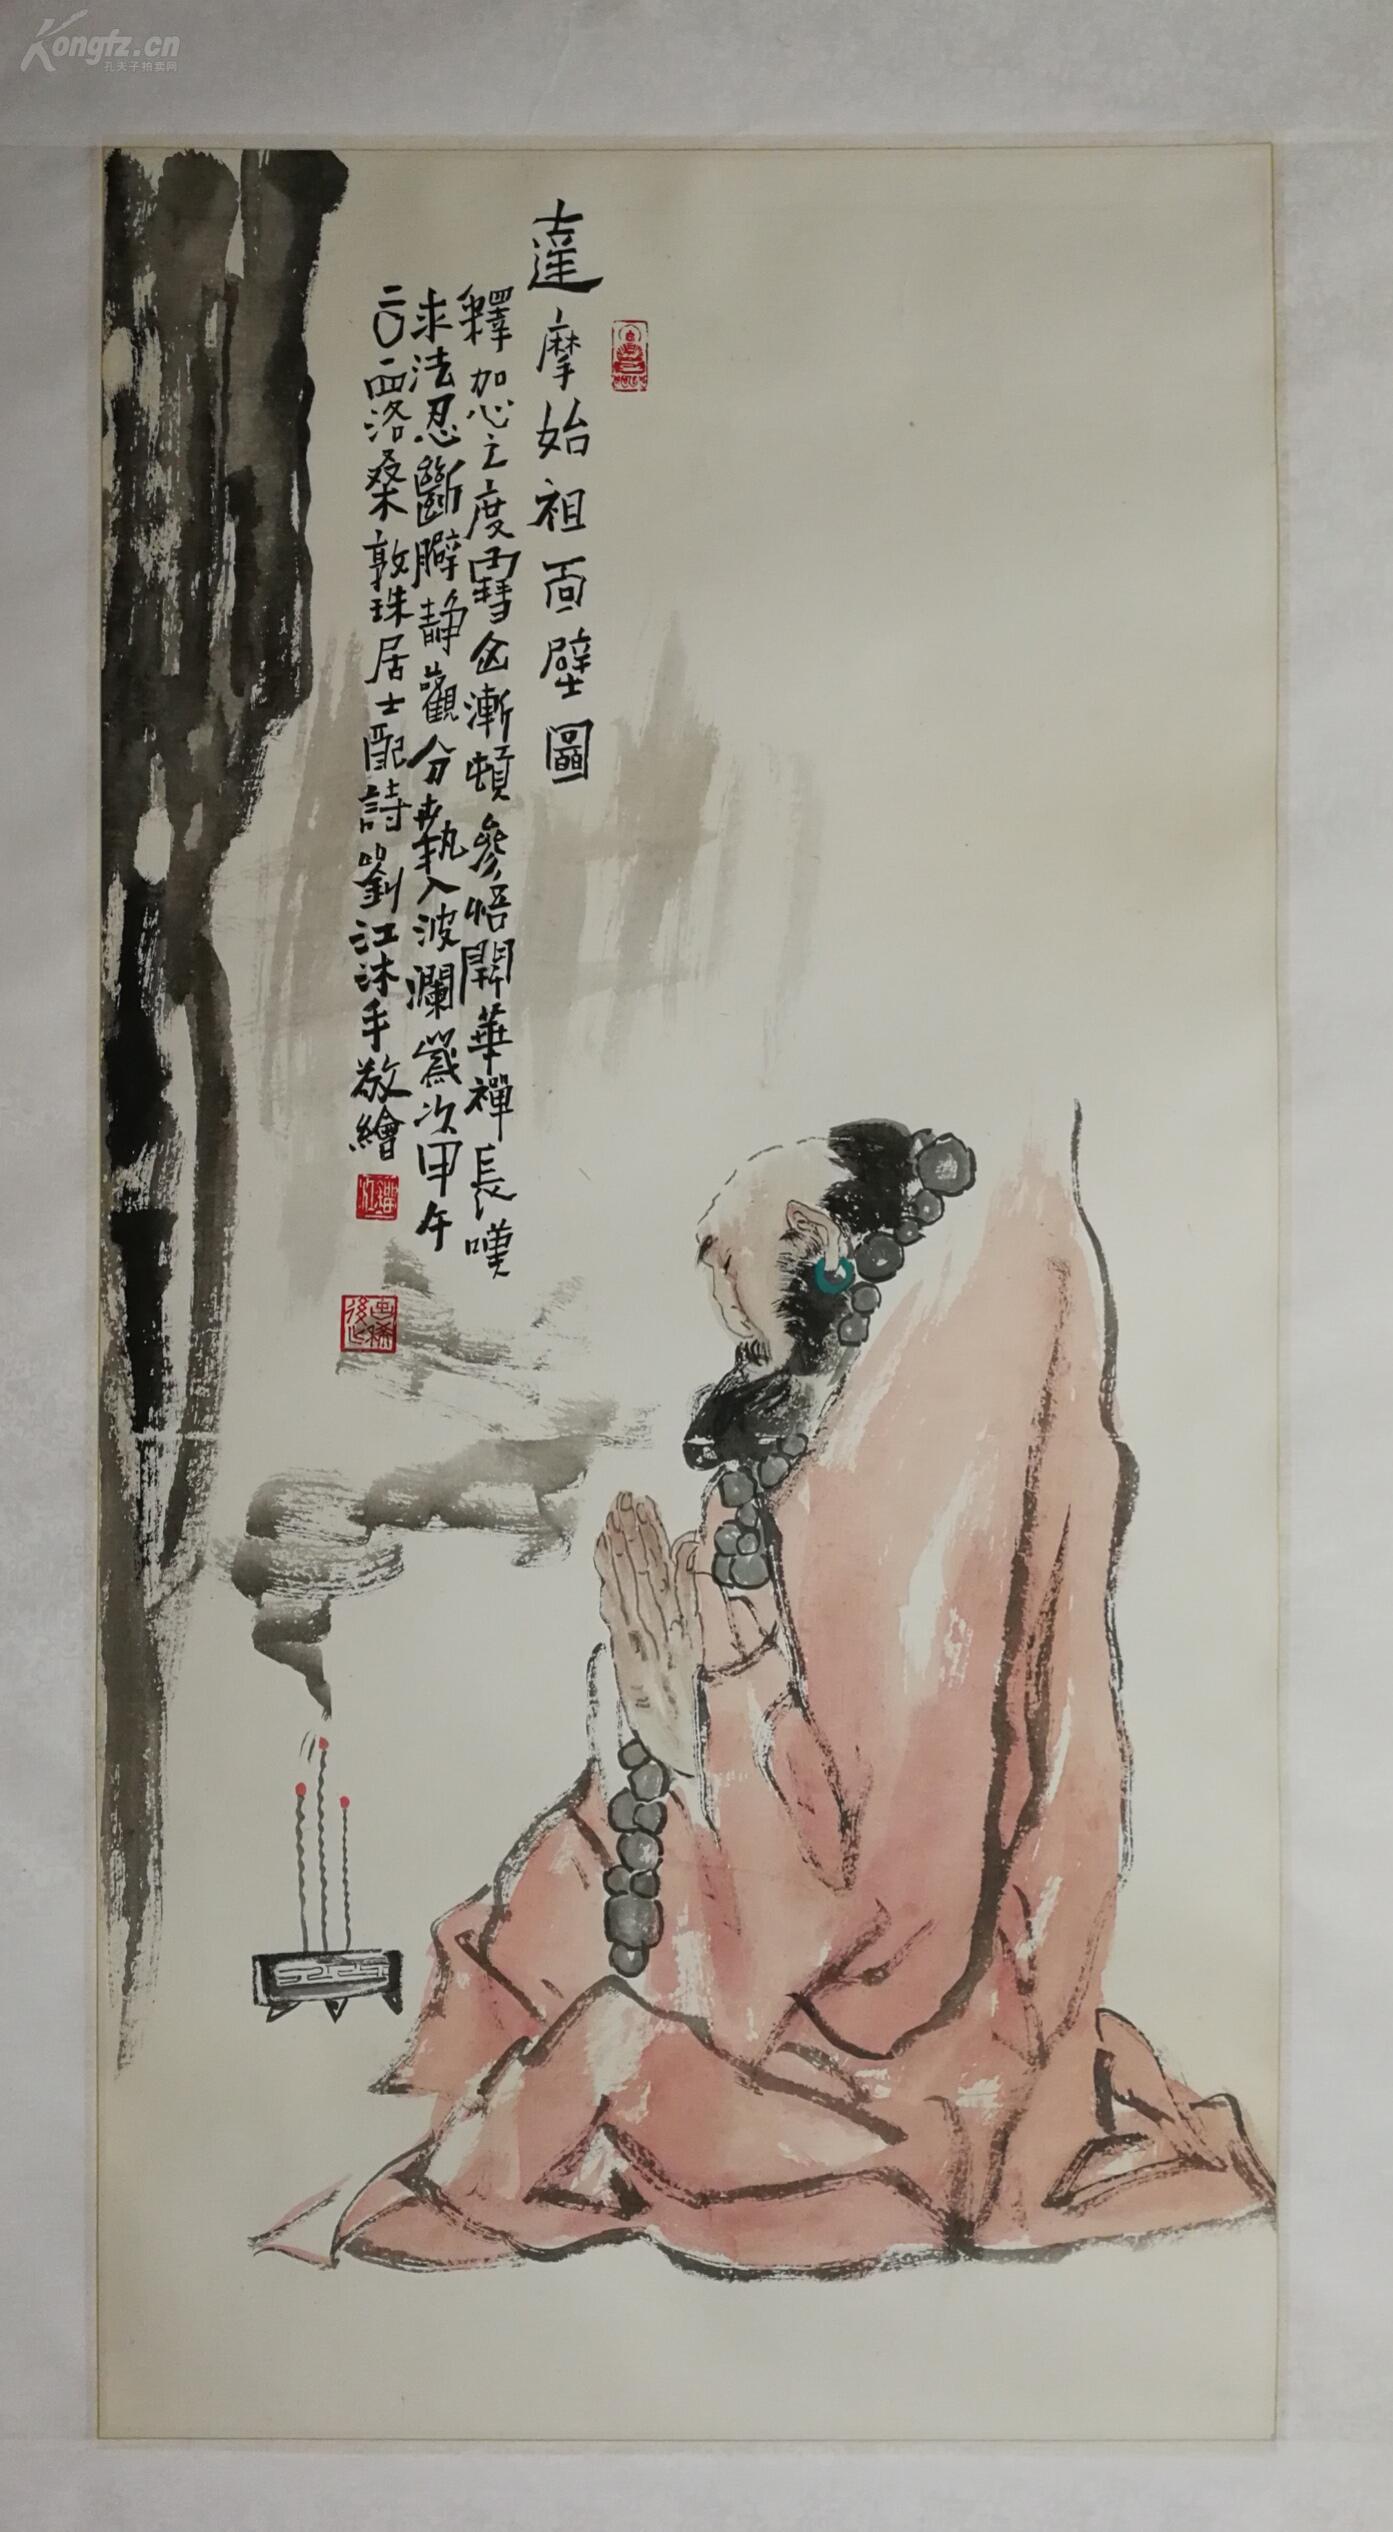 達摩始祖面壁圖
釋加心之度雪山漸頓參悟開華禪長嘆
求法忍斷臂靜觀分執入波瀾歲次甲午
二〇一四洛桑敦珠居士配詩劉江沐手敬繪
Kongfz.cn
孔夫子拍卖网